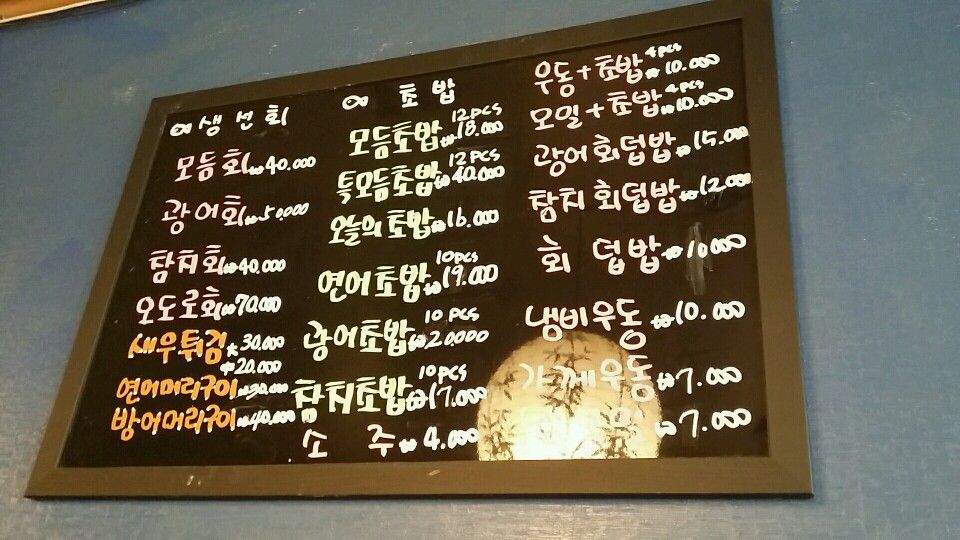 생선회
모듬회 ₩40.000
광어회 ₩50.000
참치회 ₩40.000
오도로회 ₩70.000
새우튀김 大 30.000
中 20.000
연어머리구이 ₩30.000
방어머리구이 ₩40.000
초밥
모듬초밥 12pcs ₩18.000
특모듬초밥 12pcs ₩40.000
오늘의초밥 ₩16.000
연어초밥 10pcs ₩19.000
광어초밥 10pcs ₩20.000
참치초밥 10pcs ₩17.000
소주 ₩4.000
우동+초밥 4pcs ₩10.000
모밀+초밥 4pcs ₩10.000
광어회덥밥 ₩15.000
참치회덥밥 ₩12.000
회덥밥 ₩10.000
냄비우동 ₩10.000
가께우동 ₩7.000
₩7.000